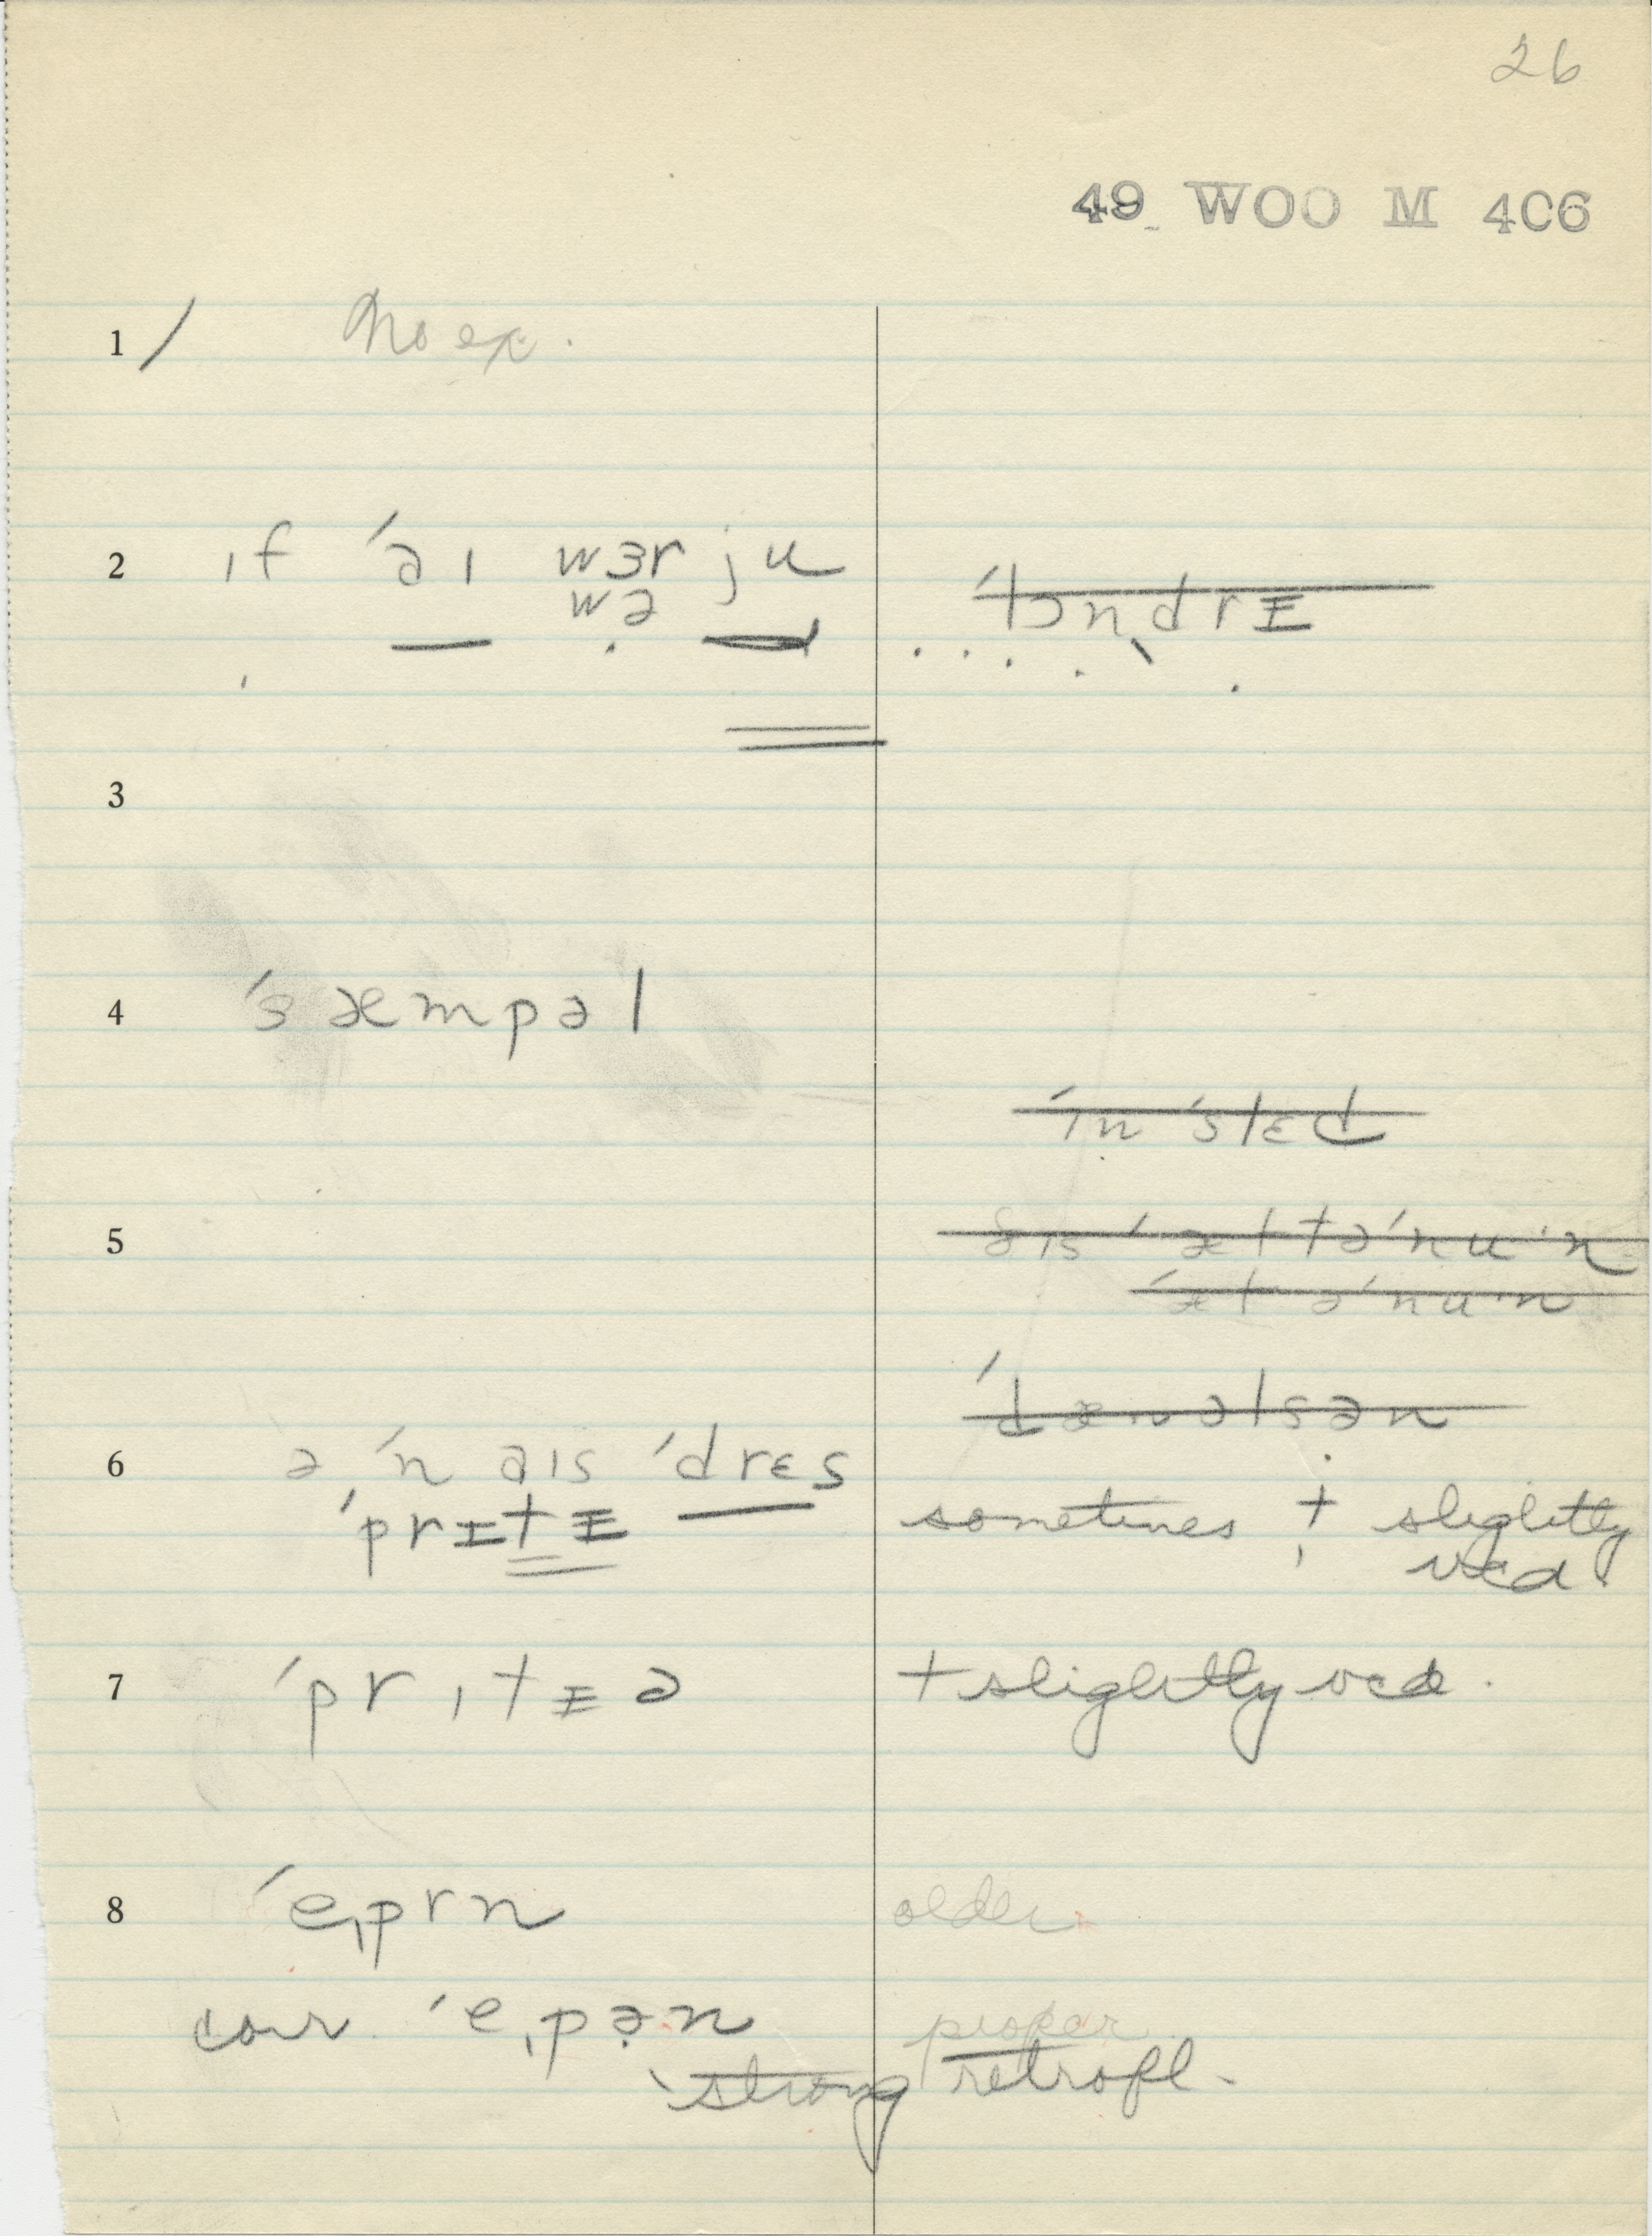 26
49 WOO M 406
1 / No ex.
2 ɪf ˈaɪ wɜr ju
wə
ˈlɔndrɪ
3
4 ˈsæmpəl
ˈɪnˈstɛd
5 ðɪs ˈæftəˈnuˑn
ˈæftəˈnuˑn
ˈdænəlsən
6 ə ˈnaɪs ˈdrɛs
ˈprɪtɪ sometimes t slightly
vcd.
7 ˈprɪtɪə t slightly vcd.
8 ˈeɪprn older
corr. ˈeɪpən proper
strong retrofl.